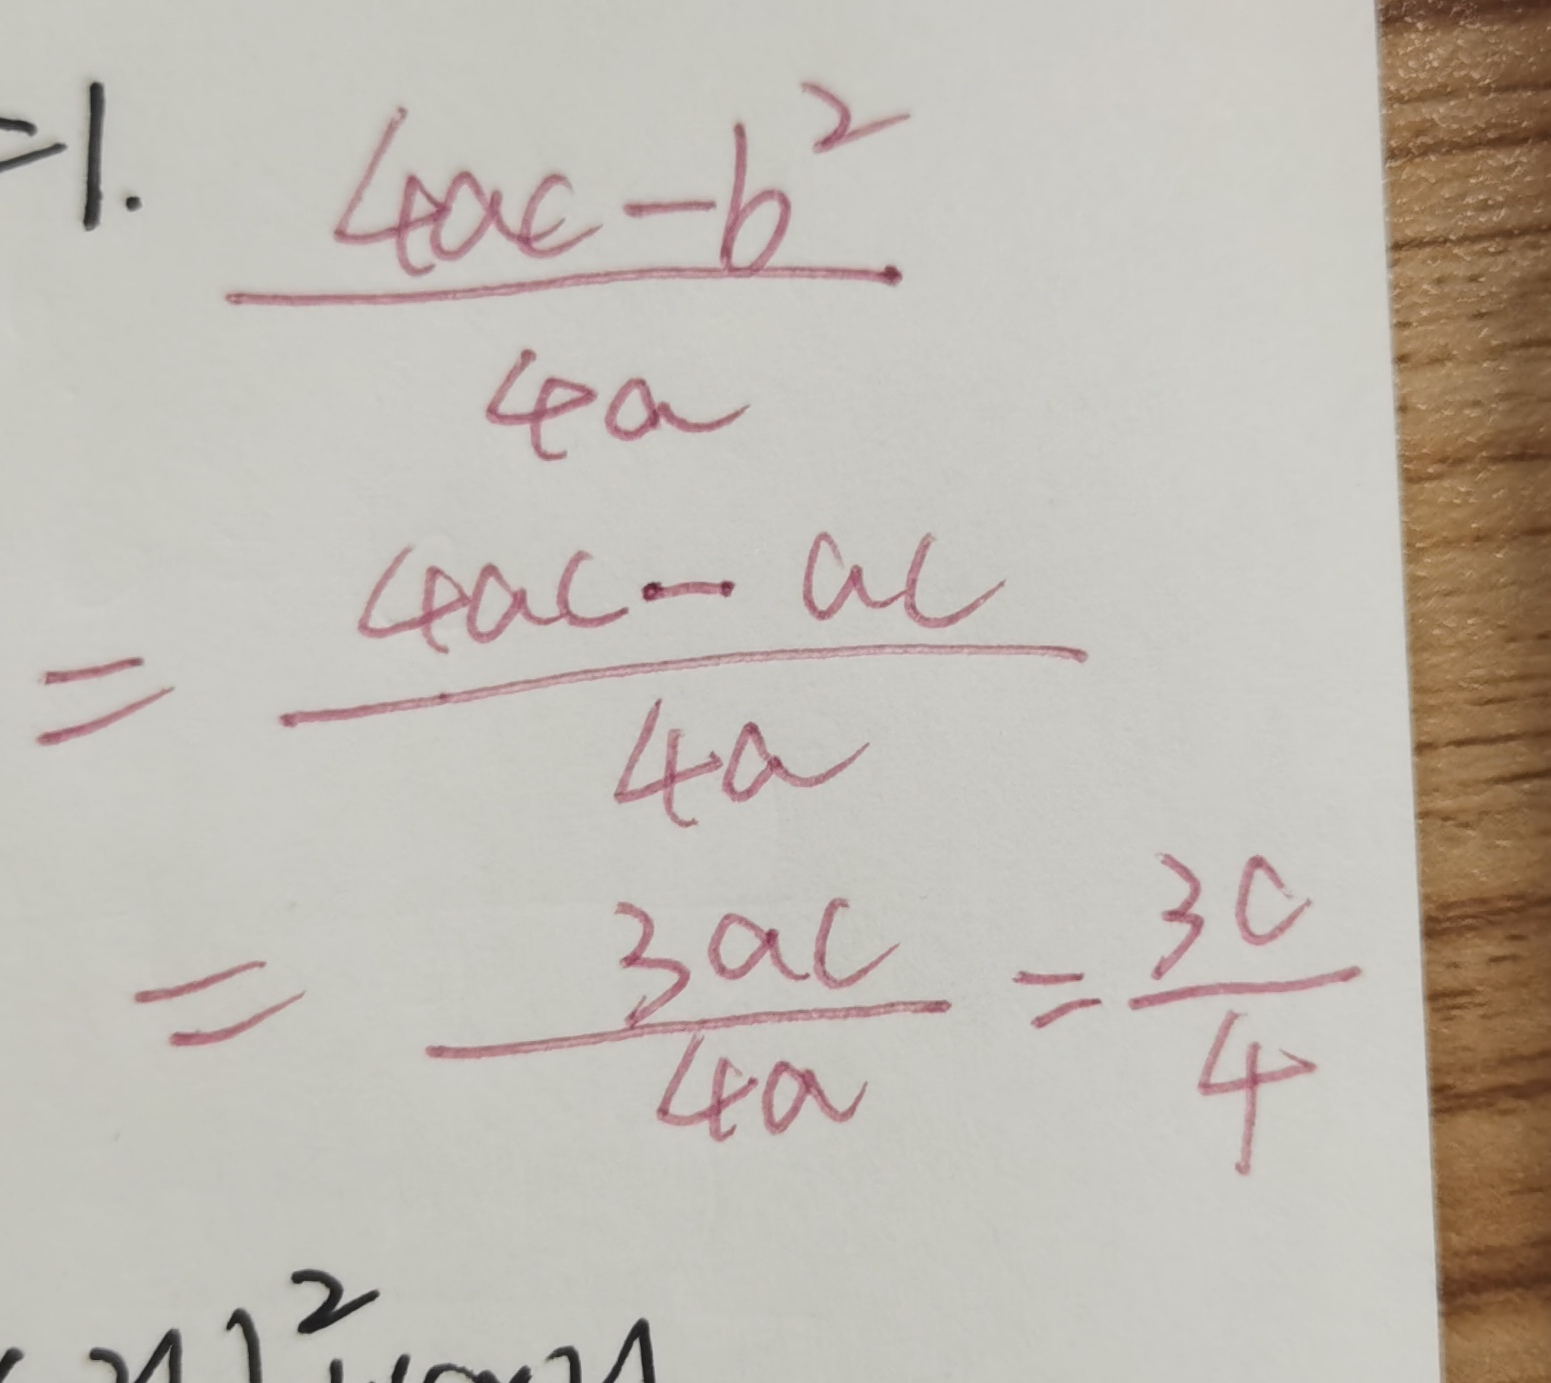 =1.
4ac-b²
4a
= 4ac-ac
4a
= 3ac = 3c
4a 4